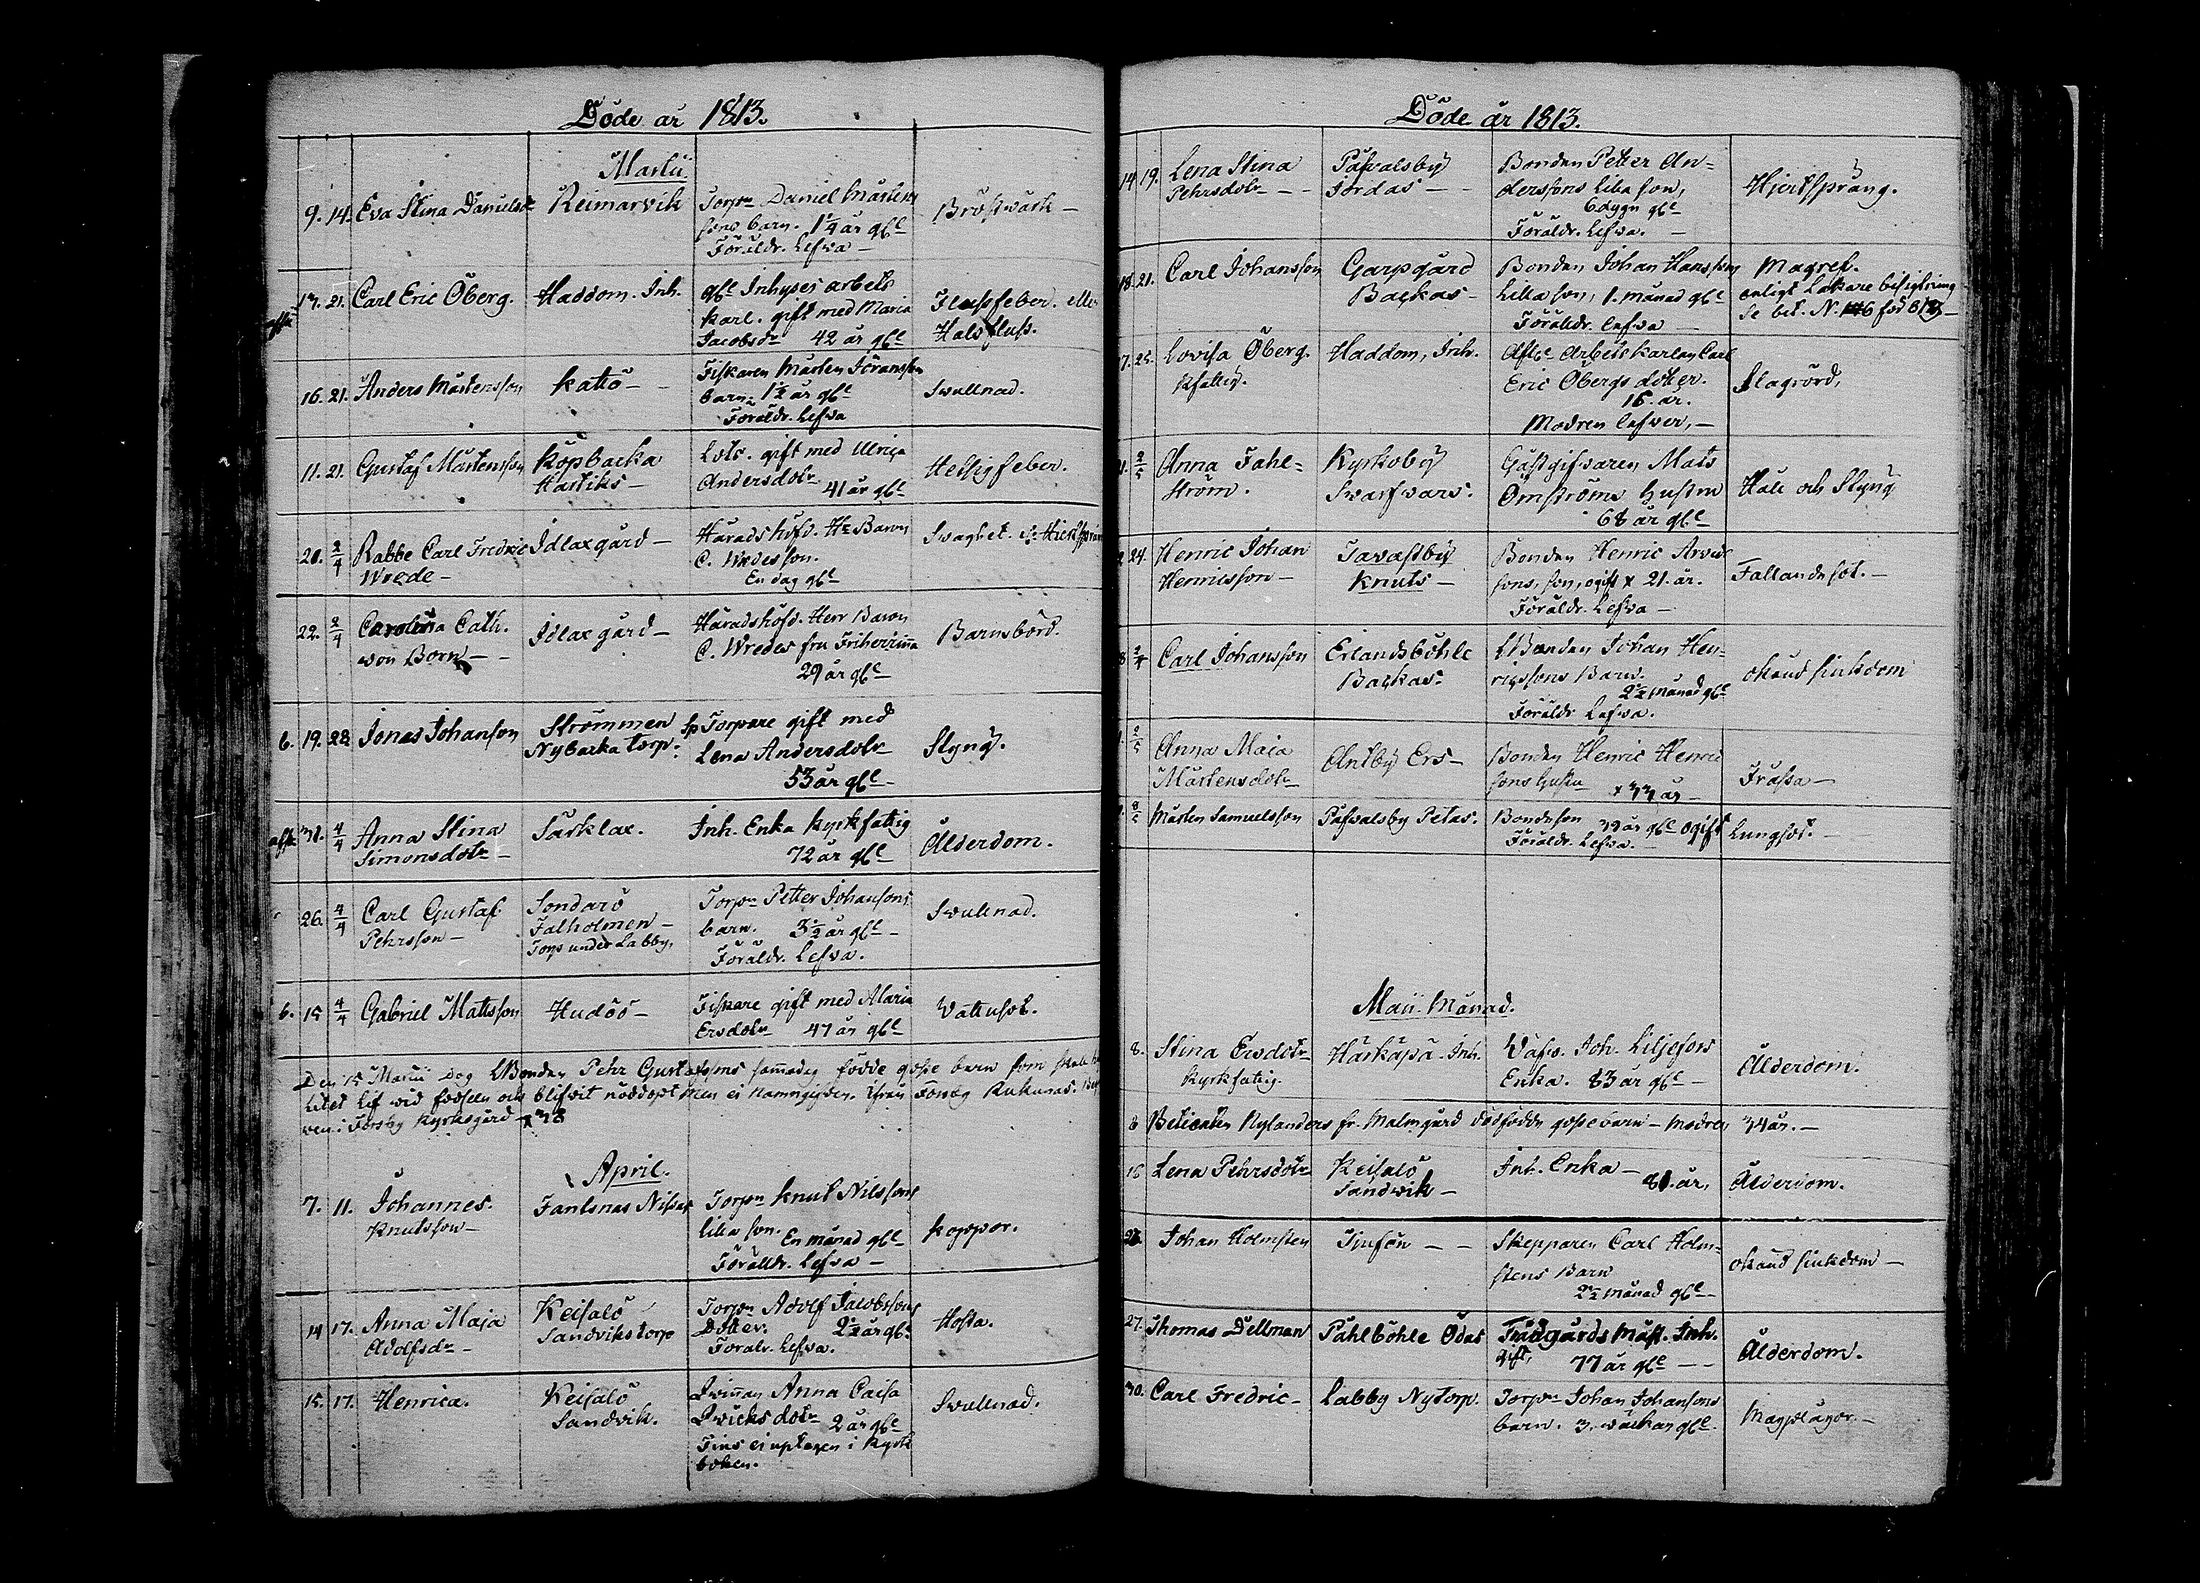 Döde år 1813.
Martii
9. 14. Eva Stina Danielsdr Reimarvik Torpn Daniel Mårtens
sons barn. 1 1/4 år gl
Föräldr. Lefva –
Bröstwärk –
17. 21. Carl Eric Öberg. Haddom. Inh. gl Inhyses arbets
karl. gift med Maria
Jacobsdr 42 år gl
Flussfeber. eller
Halsfluss.
16. 21. Anders Mårtensson Katiö – Fiskaren Mårten Göransson
barn 1 1/2 år gl
Föräldr. Lefva
Swullnad.
11. 21. Gustaf Mårtensson Köpbacka
Hartiks –
Lots. gift med Ulrica
Andersdotr 41 år gl
Hetsigfeber.
20. 2/4 Rabbe Carl Fredric
Wrede –
Idlaxgård – Häradshöfd. Hr Baron
C. Wredes son.
En dag gl
Svaghet.
22. 2/4 Carolina Cath.
von Born –
Idlax gård – Häradshöfd. Herr Baron
C. Wredes fru Friherrinna
29 år gl
Barnsbörd.
6. 19. 28. Jonas Johanson Strömmen
Nybacka torp.
Torpare gift med
Lena Andersdotr
53 år gl
Styng.
31. 4/4 Anna Stina
Simonsdotr –
Särklax. Inh. Enka kyrkfattig
72 år gl
Ålderdom.
26. 4/4 Carl Gustaf
Pehrsson –
Sondarö
Falholmen –
Torp under Labby.
Torpn Petter Johansons
barn. 3 1/2 år gl –
Föräldr. Lefva.
Swullnad.
6. 15 4/4 Gabriel Matsson Hudöö – Fiskare gift med Maria
Ersdotr 47 år gl
Vattusot.
Den 15 Martii Dog LBonden Pehr Gustafsons samma dag födde gosse barn som
litet lif vid födseln och blifvit nöddöpt men ei namngifven. ifrån Forsby Kukunas.
ven i Forsby Kyrkogård –
April.
7. 11. Johannes.
Knutsson –
Fantsnäs Nissas Torpn Knut Nilssons
lilla son. En månad gl
Föräldr. Lefva –
Koppor.
14 17. Anna Maja
Adolfsdr –
Keisalö
Sandvikstorp
Torpn Adolf Jacobssons
Dotter. 2 1/2 år gl.
Föräldr. Lefva.
Hosta.
15. 17. Henrica. Keisalö
Sandvik.
Qwinnan Anna Caisa
Qvicksdotr 2 år gl
Fins ei uptagen i Kyrk
boken.
Swullnad.
Döde år 1813.
14 19. Lena Stina
Pehrsdotr – –
Påfvalsby
Jordas – –
Bonden Petter An=
derssons lilla son,
6 dygn gl
Föräldr. Lefva. –
Hjertspräng.
18. 21. Carl Johansson Garpgård
Backas –
Bonden Johan Hansson
Lilla son, 1. månad gl
Föräldr. lefva –
Magref.
enligt Läkare besigtning
Se bil. N.
7. 25. Lovisa Öberg.
kfattig.
Haddom, Inh. Aftl Arbetskarlen Carl
Eric Öbergs doter.
16 år.
Modren lefver, –
Slagrörd,
2/5 Anna Fahl=
ström.
Kyrkoby
Svarfvars.
Gästgifvaren Mats
Omströms hustru
68 år gl –
Håll och Styng
2 24. Henric Johan
Henricsson –
Tavastby
Knuts –
Bonden Henric Arvid
sons, son, ogift x 21. år.
Föräldr. Lefva –
Fallandesot. –
8 2/4 Carl Johansson Erlandsböhle
Backas.
LBonden Johan Hen=
ricssons Barn.
2 1/2 månad gl
Föräldr Lefva.
okänd siukdom
2/5 Anna Maja
Mårtensdotr –
Antby Ers – Bonden Henric Henric
sons hustru x 33 år –
Frossa –
8/5 Mårten Samuelsson Påfvalsby Petas. Bondeson 39 år gl ogift
Föräldr. Lefva. –
Lungsot. –
Maii Månad.
8. Stina Ersdotr
kyrkfattig.
Härkäpä. Inh. Vafv. Joh. Liljefors
Enka. 83 år gl –
Ålderdom.
8 Betienten Nylanders fr. Malmgård dödfödde gossebarn – modren 34 år. –
16 Lena Pehrsdotr Keisalö
Sandwik –
Inh. Enka –
81. år,
Ålderdom.
23. Johan Holmsten Tjufön – – Skepparen Carl Holm=
stens Barn
2 1/2 månad gl –
okänd siukdom –
27. Thomas Dellman Påhlböhle Ödas Trädgårds Mäst. Inh.
gift, 77 år gl – –
Ålderdom.
30. Carl Fredric – Labby Nytorp. Torpn Johan Johansons
barn. 3. wäckor gl.
Magplågor. –